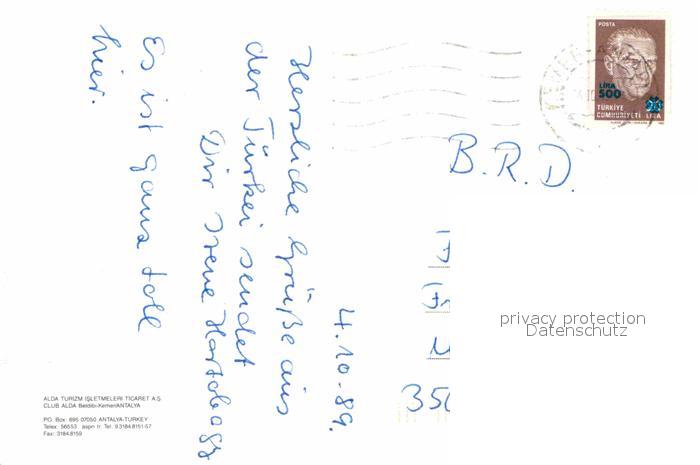 4.10.89.
Herzliche Grüße aus
der Türkei sendet
Dir Irene
Es ist ganz toll
hier.
POSTA
LIRA
500
20
TÜRKİYE
CUMHURİYETİ LİRA
B.R.D.
350
privacy protection
Datenschutz
ALDA TURIZM IŞLETMELERI TICARET A.Ş.
CLUB ALDA Beldibi-Kemer/ANTALYA
P.O. Box: 695 07050 ANTALYA-TURKEY
Telex: 56553 aspn tr. Tel: 9.3184.8151-57
Fax: 3184.8159